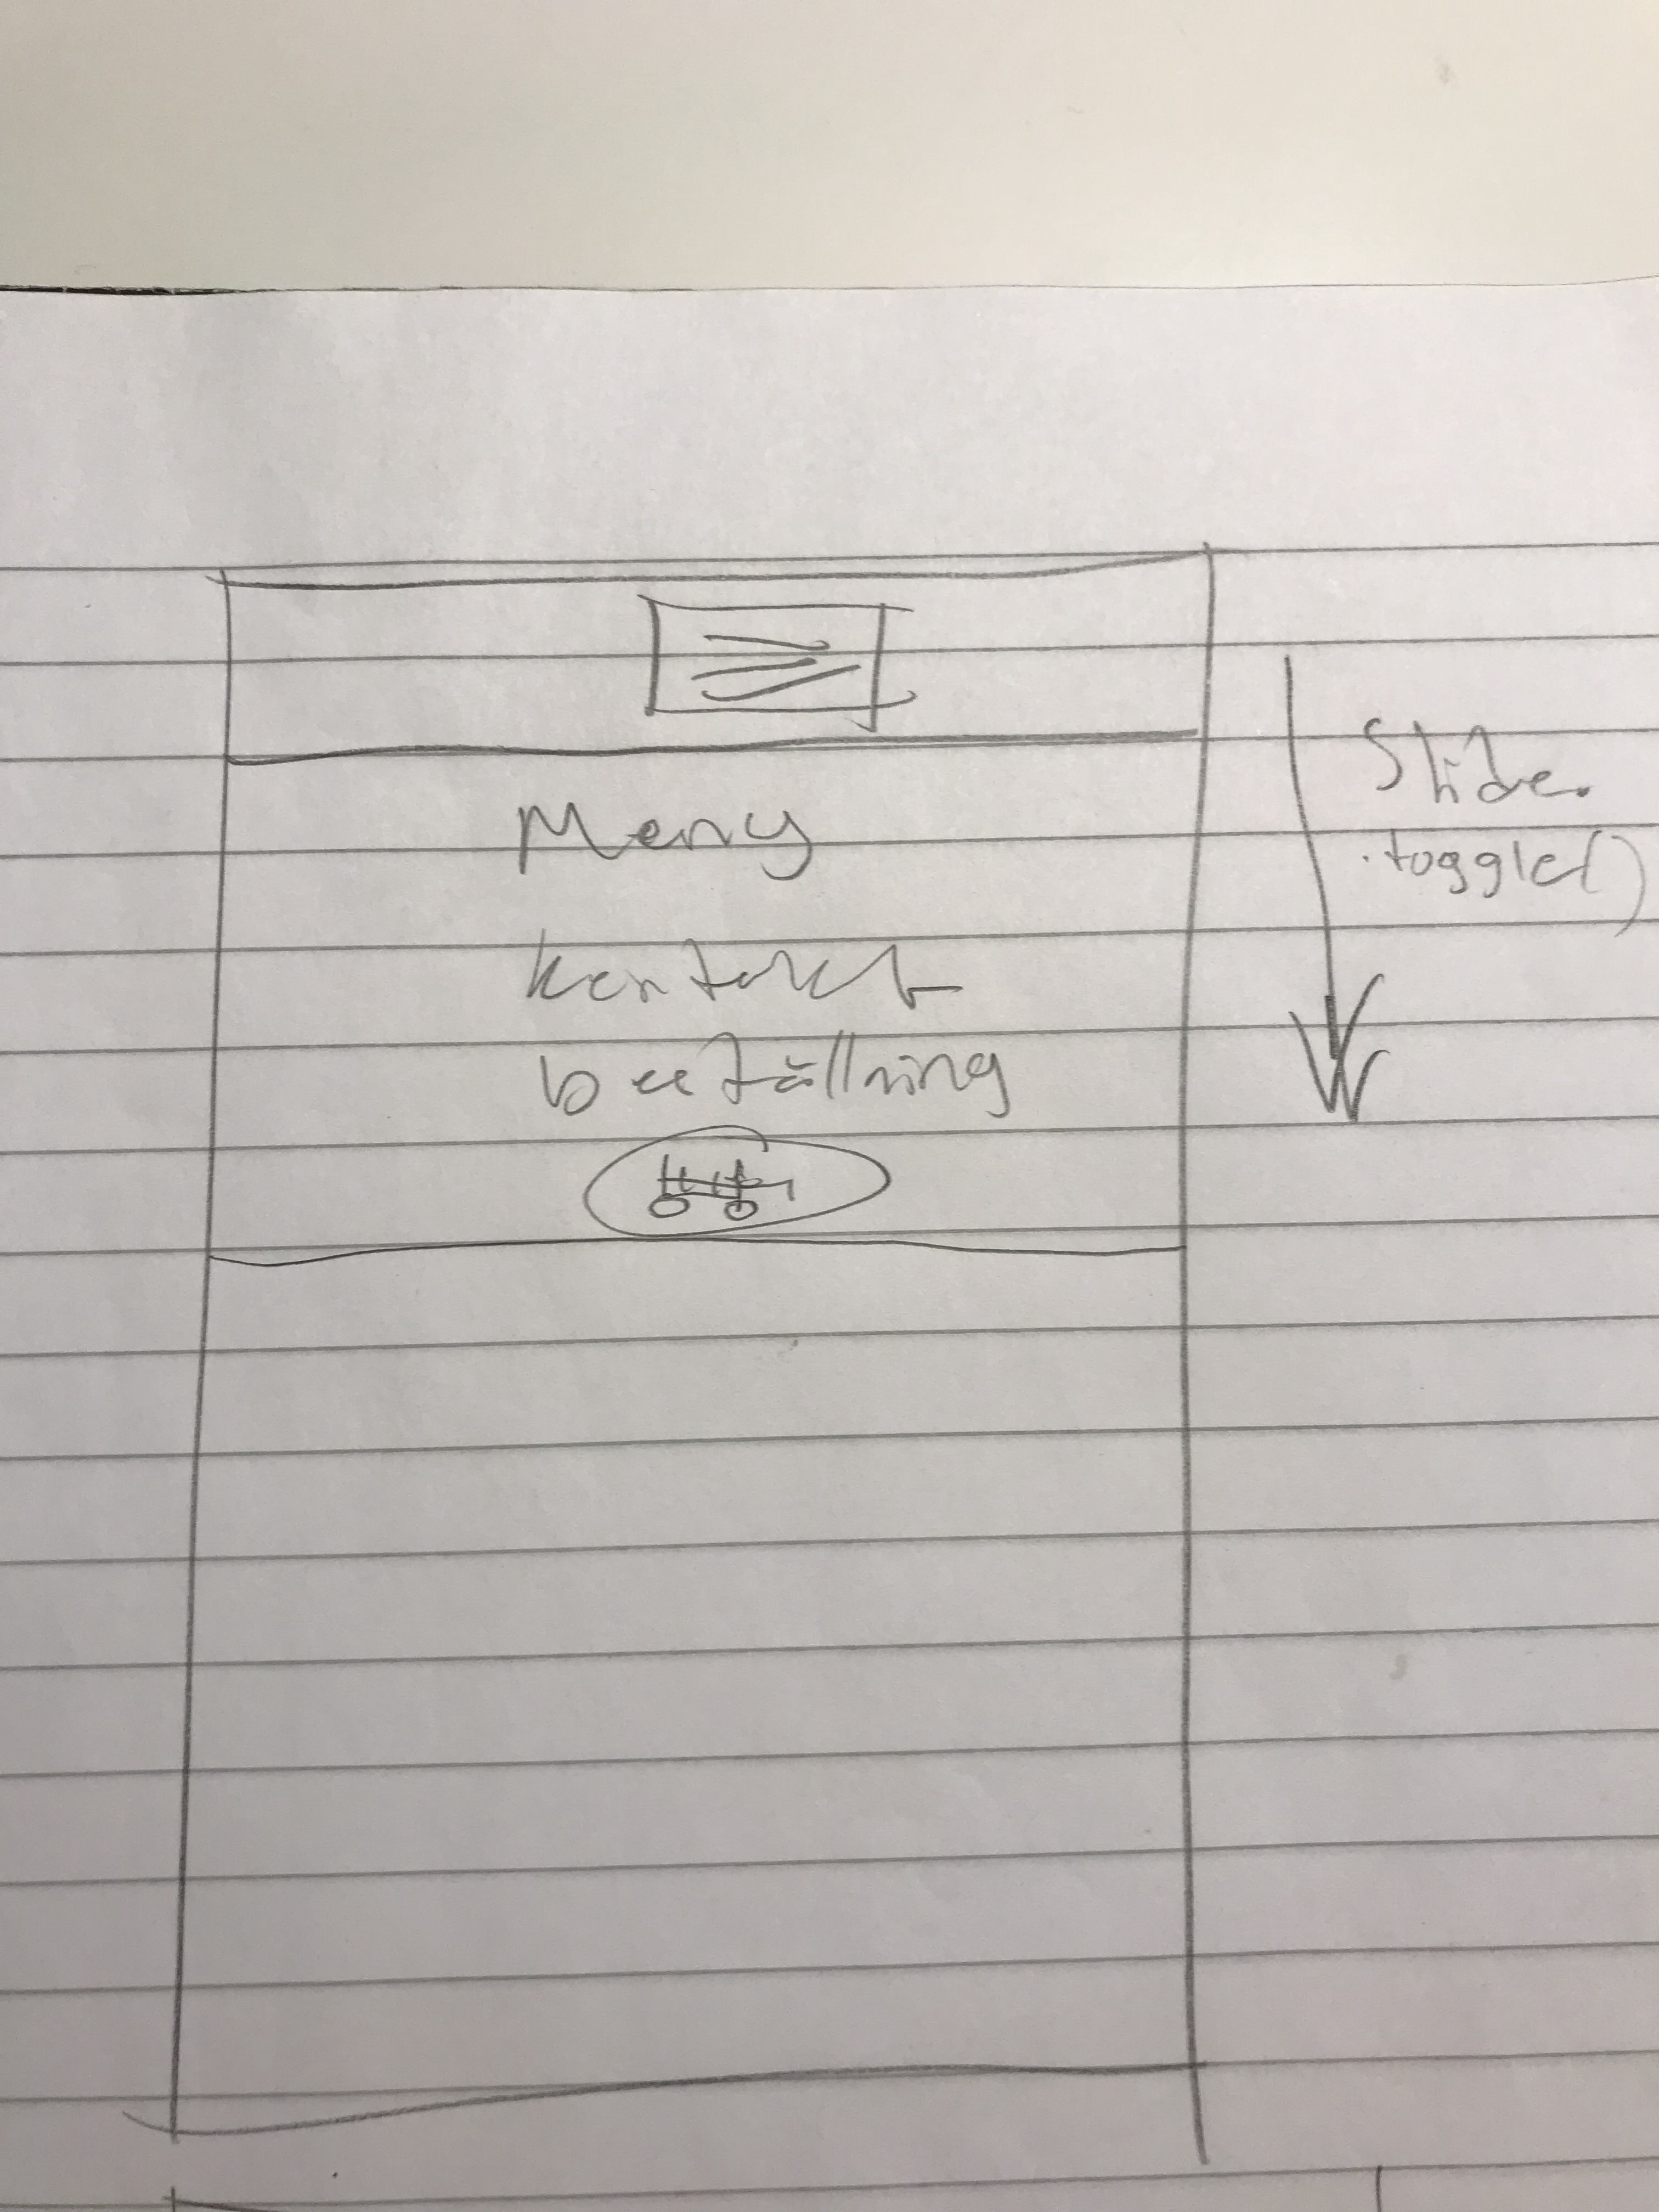 Meny
kontakt
beställning
Slide.
.toggle()